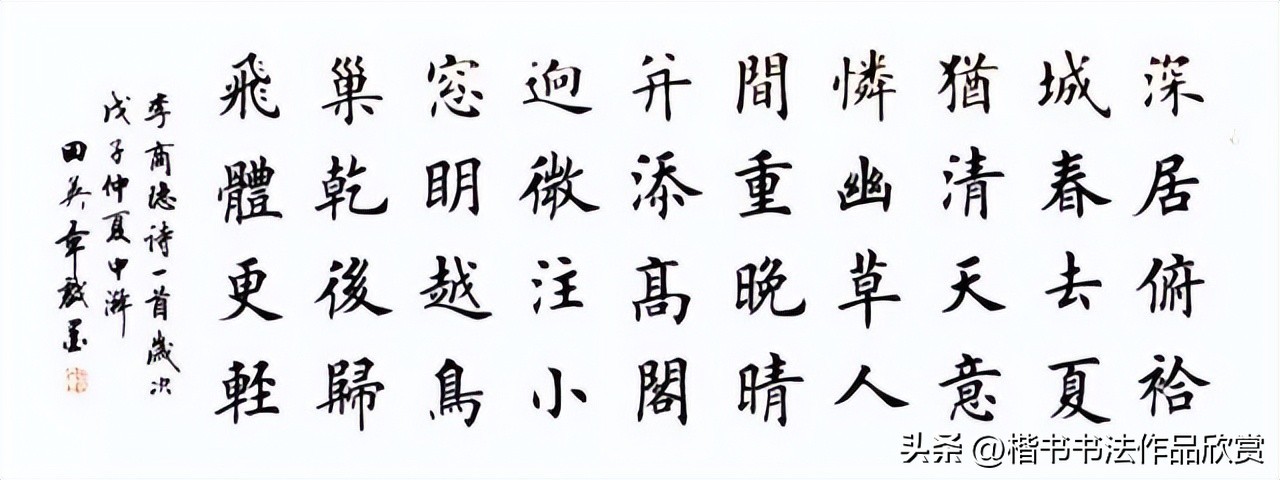 深居俯袷
城春去夏
猶清天意
憐幽草人
間重晚晴
并添髙閣
逈微注小
窓眀越鳥
巢乾後歸
飛體更輕
李商隐诗一首歲次
戊子仲夏中澣
田英章
头条 @楷书书法作品欣赏